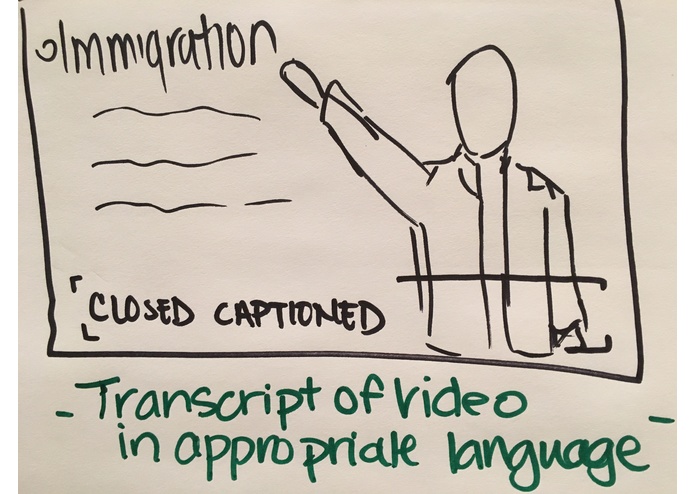 Immigration
CLOSED CAPTIONED
- Transcript of Video -
in appropriate language